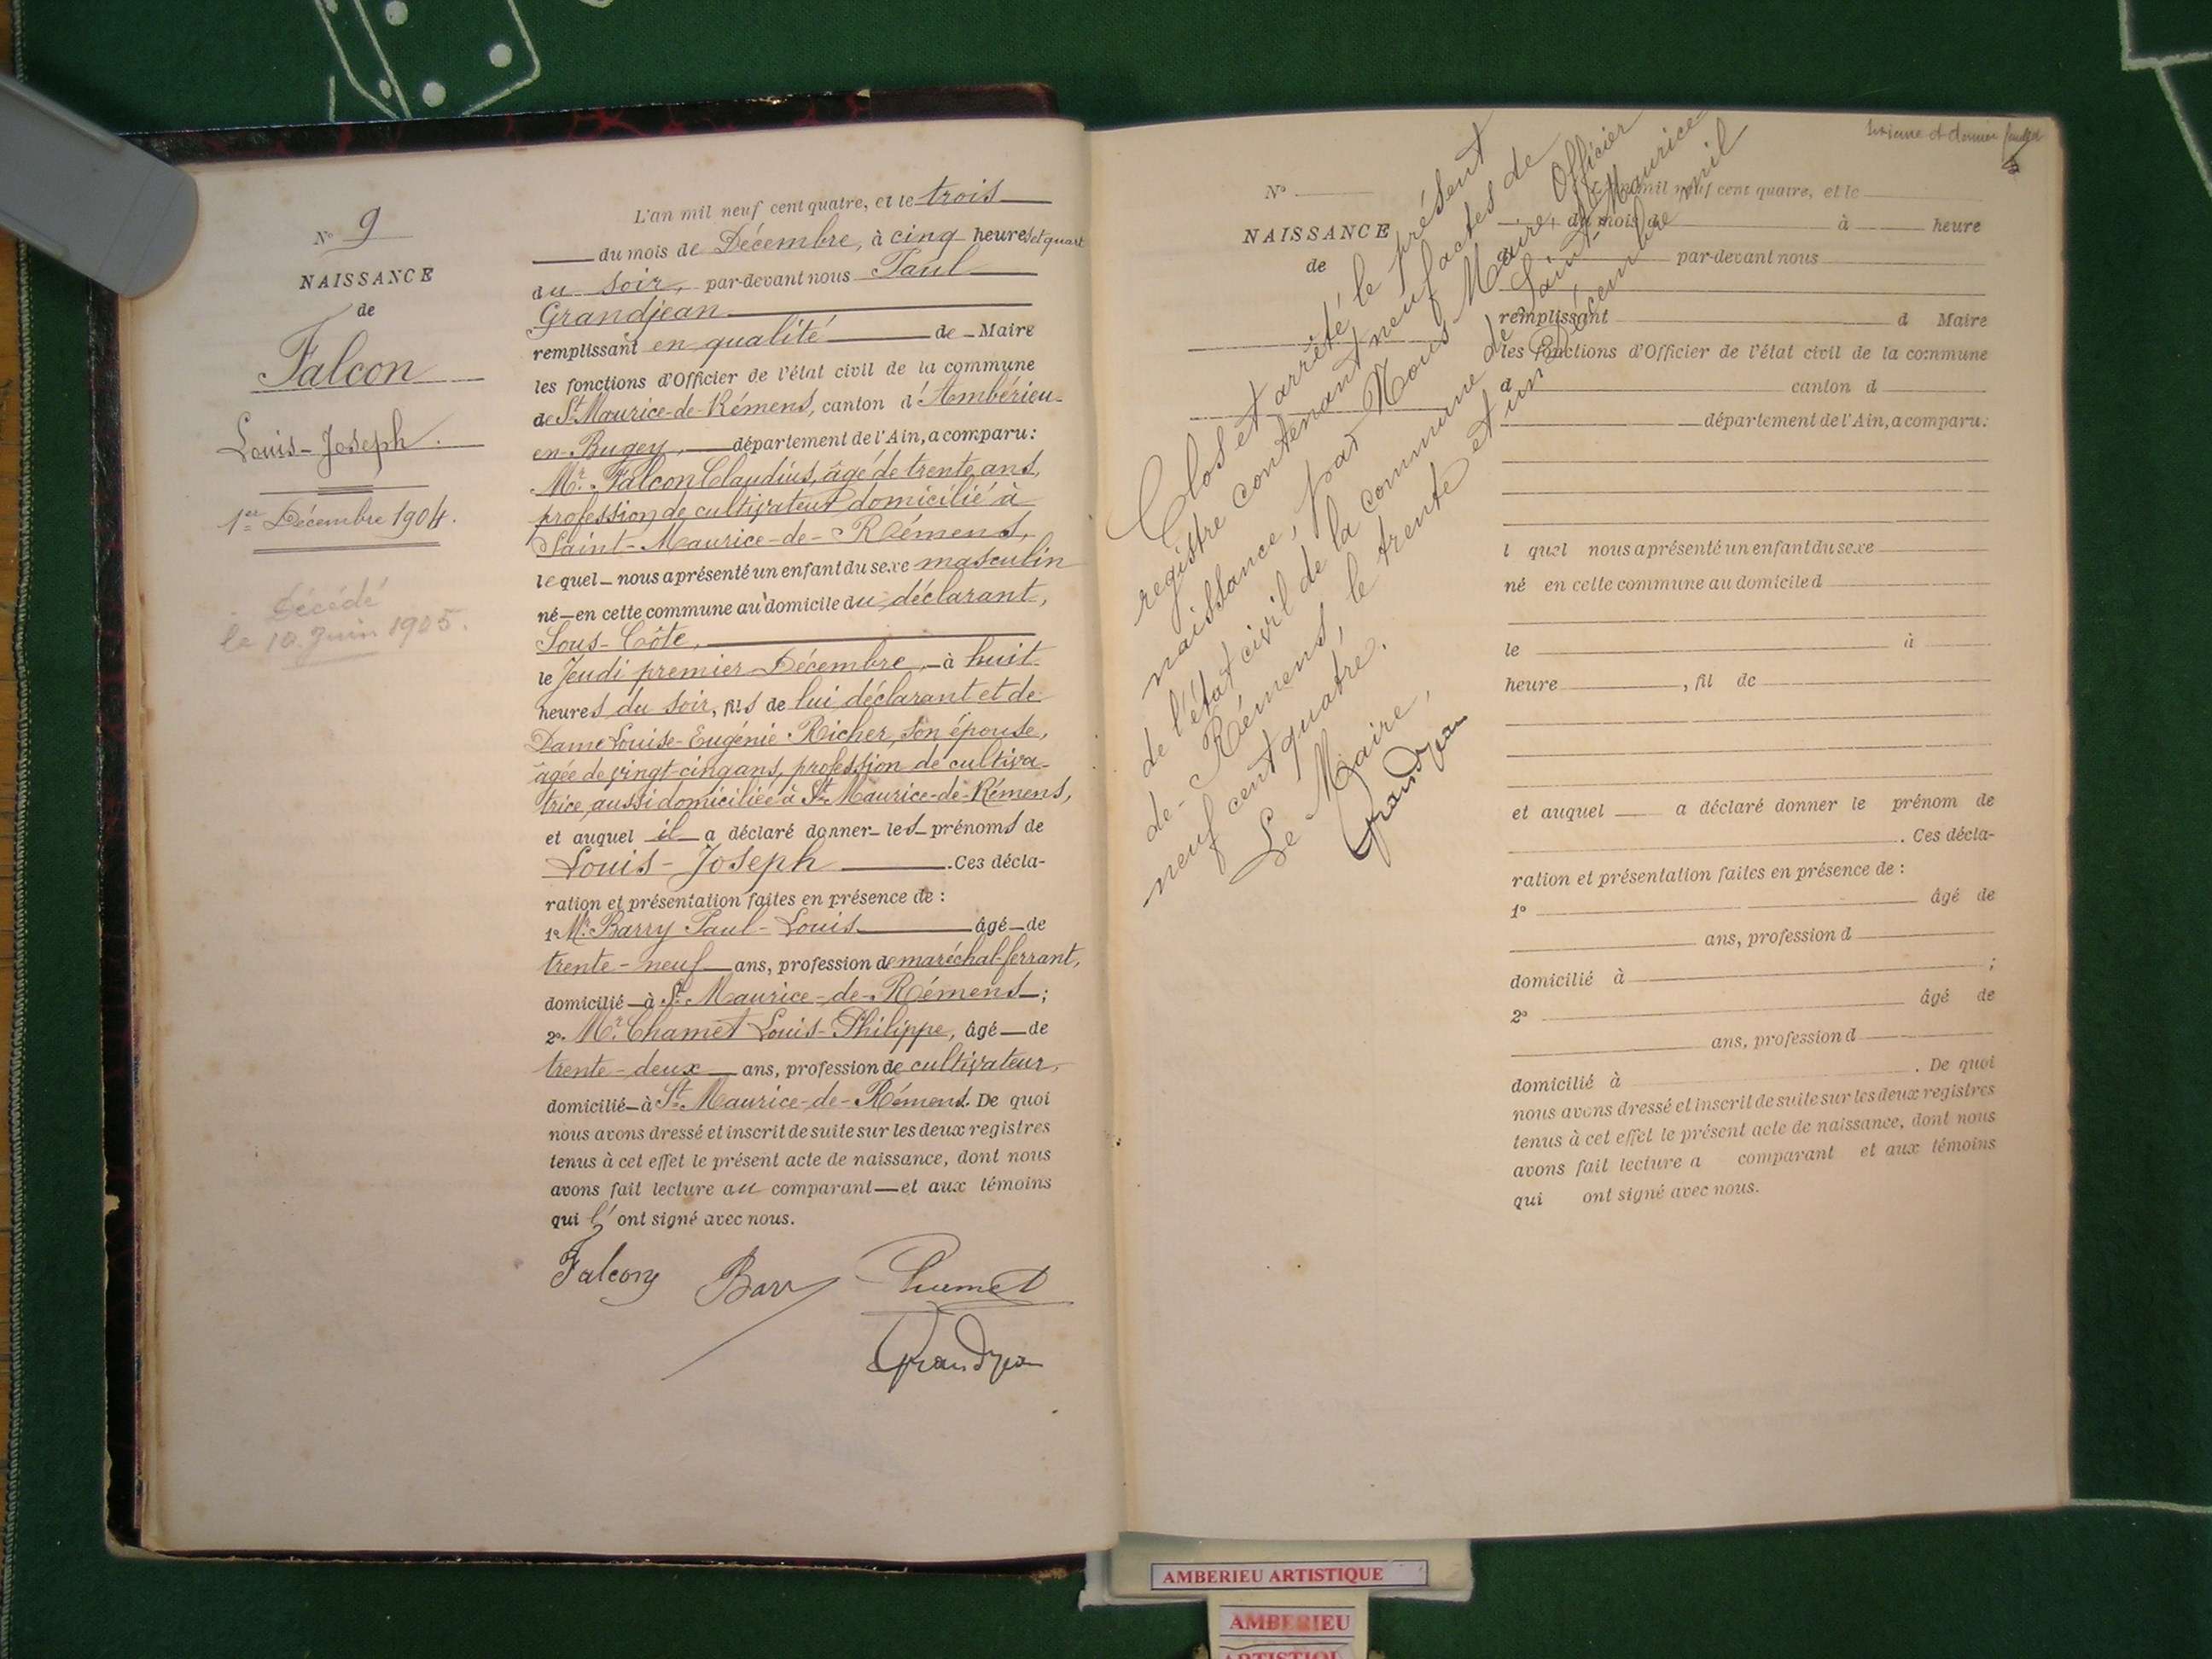 N° 9
NAISSANCE
de
Falcon
Louis-Joseph.
1er Décembre 1904.
Décédé
le 10 Juin 1905.
L'an mil neuf cent quatre, et le trois
du mois de Décembre, à cinq heures et quart
du soir, par-devant nous Paul
Grandjean
remplissant en qualité de Maire
les fonctions d'Officier de l'état civil de la commune
de St Maurice-de-Rémens, canton d'Ambérieu-
en-Bugey, département de l'Ain, a comparu :
Mr. Falcon Claudius, âgé de trente ans,
profession de cultivateur domicilié à
Saint-Maurice-de-Rémens,
lequel nous a présenté un enfant du sexe masculin
né en cette commune au domicile du déclarant,
Sous-Côte,
le Jeudi premier Décembre, à huit
heures du soir, fils de lui déclarant et de
Dame Louise-Eugénie Richer, son épouse,
âgée de vingt-cinq ans, profession de cultiva-
trice, aussi domiciliée à St Maurice-de-Rémens,
et auquel il a déclaré donner les prénoms de
Louis-Joseph. Ces décla-
ration et présentation faites en présence de :
1° Mr. Barry Paul-Louis âgé de
trente-neuf ans, profession de maréchal-ferrant,
domicilié à St Maurice-de-Rémens ;
2° Mr. Chamet Louis-Philippe, âgé de
trente-deux ans, profession de cultivateur,
domicilié à St Maurice-de-Rémens. De quoi
nous avons dressé et inscrit de suite sur les deux registres
tenus à cet effet le présent acte de naissance, dont nous
avons fait lecture au comparant et aux témoins
qui l'ont signé avec nous.
Falcon Barry Chamet
Grandjean
et dernier feuillet
N°
NAISSANCE
de
Clos et arrêté le présent
registre contenant neuf actes de
naissance, par Nous Maire, Officier
de l'état civil de la commune de Saint-Maurice
de-Rémens, le trente et un Décembre mil
neuf cent quatre.
Le Maire,
Grandjean
mil neuf cent quatre, et le
du mois d à heure
par-devant nous
remplissant d Maire
les fonctions d'Officier de l'état civil de la commune
d canton d
département de l'Ain, a comparu :
l quel nous a présenté un enfant du sexe
né en cette commune au domicile d
le à
heure , fil de
et auquel a déclaré donner le prénom de
. Ces décla-
ration et présentation faites en présence de :
1° âgé de
ans, profession d
domicilié à ;
2° âgé de
ans, profession d
domicilié à . De quoi
nous avons dressé et inscrit de suite sur les deux registres
tenus à cet effet le présent acte de naissance, dont nous
avons fait lecture a comparant et aux témoins
qui ont signé avec nous.
AMBERIEU ARTISTIQUE
AMBERIEU